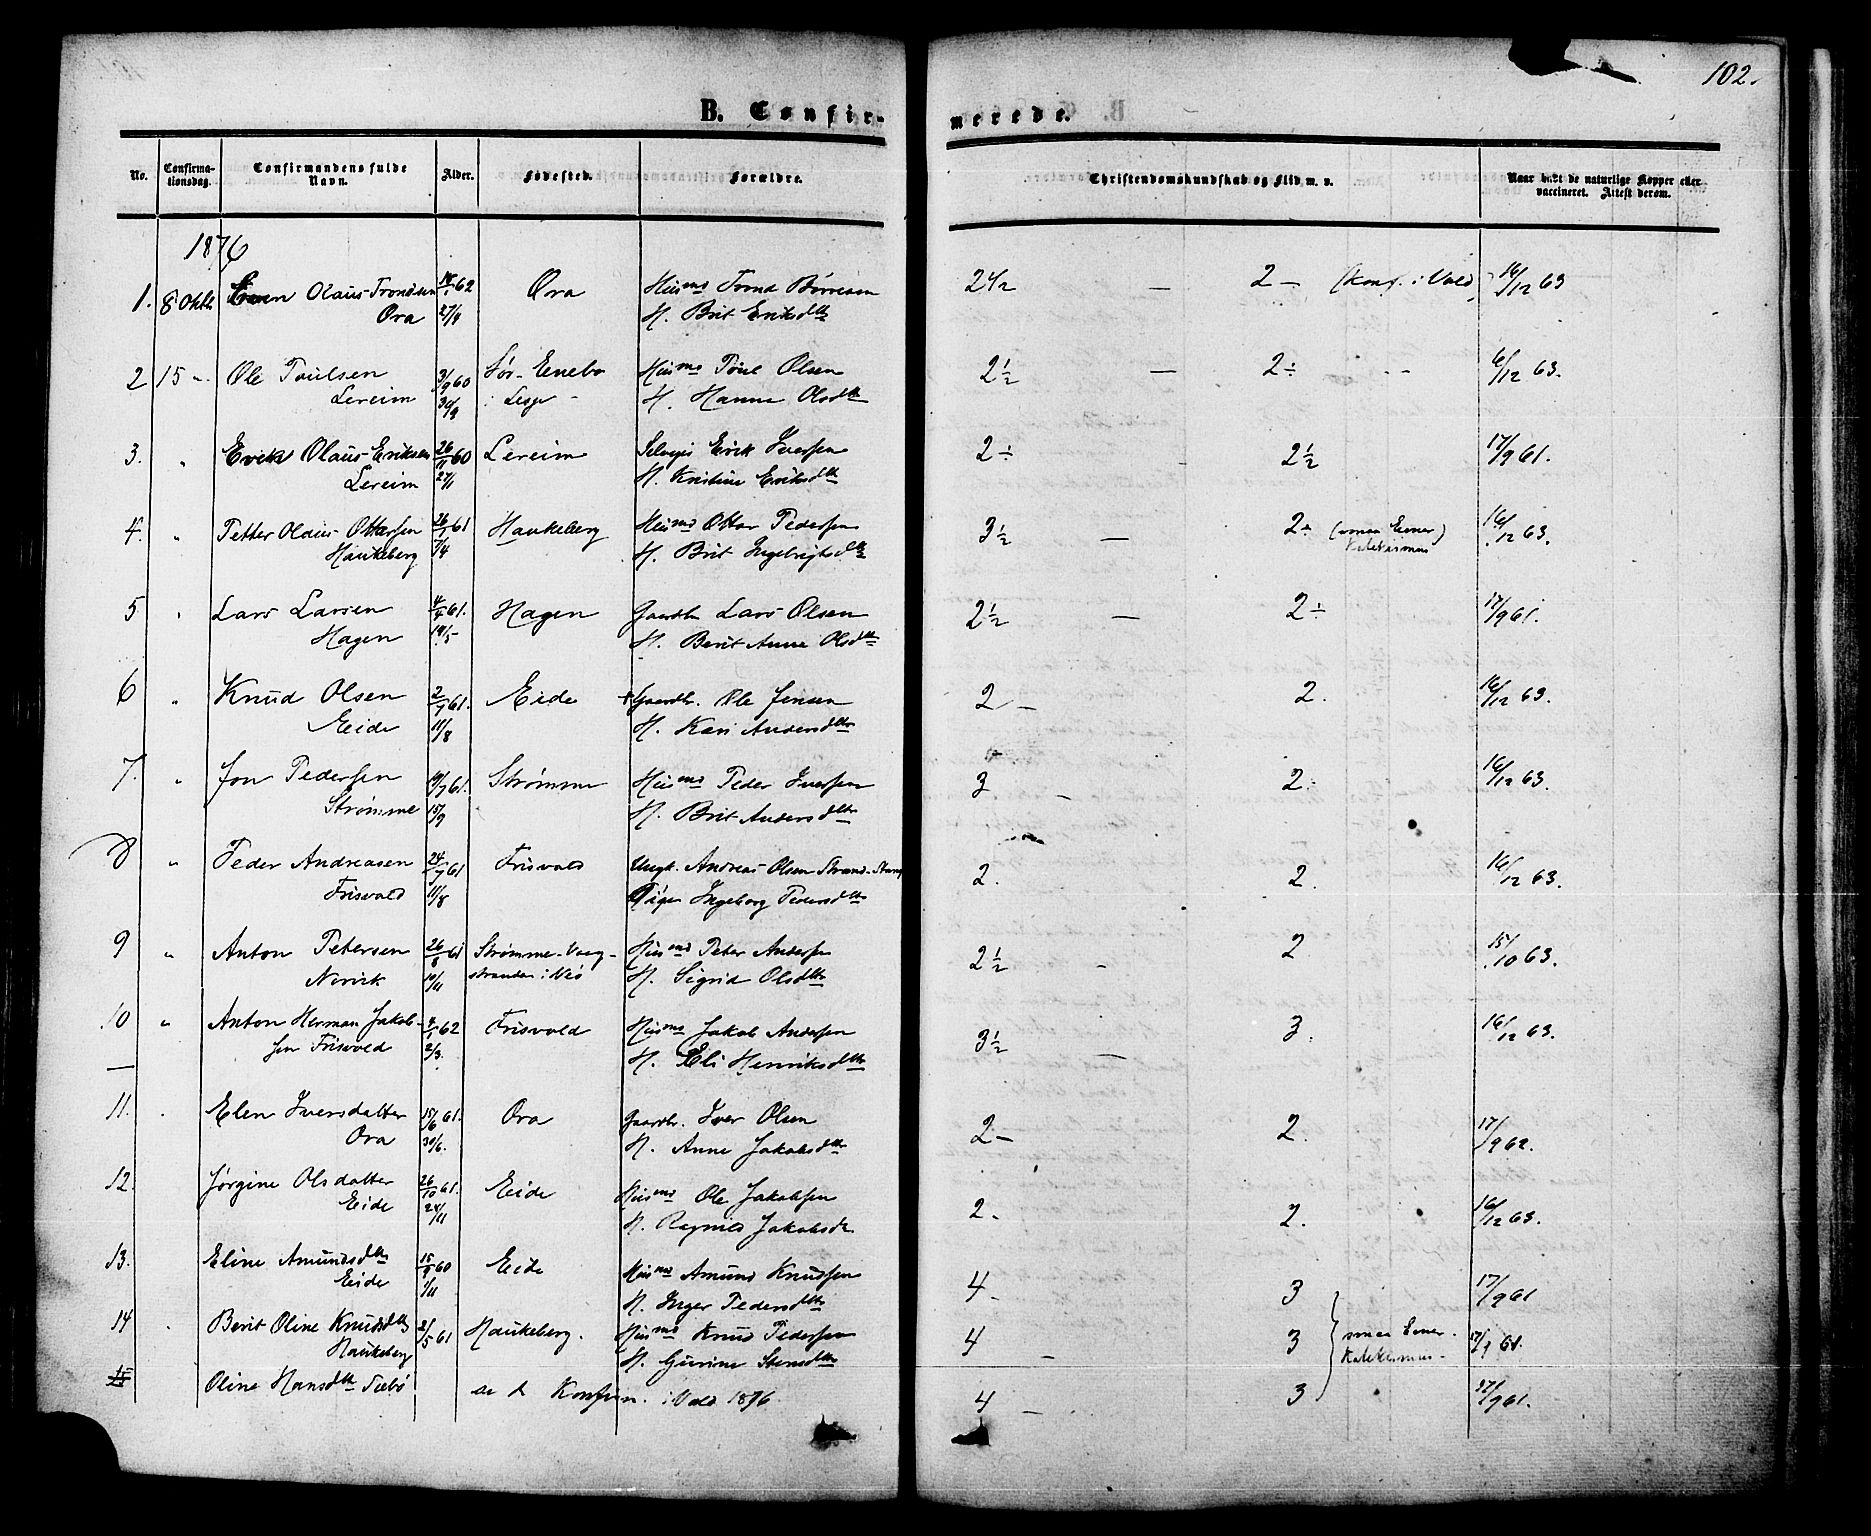 102.
B. Confirmerede.
No. Confirmationsdag. Confirmandens fulde Navn. Alder. Fødested. Forældre. Christendomskundskab og Flid m. v. Naar havt de naturlige Kopper eller vaccineret. Attest derom.
1876
1. 8 Oktbr. Olaus Trondsen 62 Ora Husmd 2 1/2 — 2 — (Konf. i Vold) 16/12 63
Ora 27/4 H. Brit Eriksdtr
2 15 " Ole Paulsen 3/9 60 Sør-Enebo Husmd Poul Olsen 2 1/2 — 2 ÷ 16/12 63.
Lereim 30/9 H. Hanne Olsdtr
3. " Erik Olaus Eriksen 26/11 60 Lereim Selvejer Erik Iversen 2 ÷ 2 1/2 17/9 61.
Lereim 27/11 H. Kristine Eriksdtr
4. " Petter Olaus Ottersen 26/1 61 Haukeberg Husmd Otter Pedersen 3 1/2 — 2 ÷ 16/12 63.
Haukeberg 7/4 H. Brit Ingebrigtsdtr Katekismus
5 " Lars Larsen 4/4 61. Hagen Gaardbr Lars Olsen 2 1/2 — 2 ÷ 17/9 61.
Hagen 19/5 H. Berit Anne Olsdtr
6 " Knud Olsen 2/7 61. Eide + Gaardbr. Ole Jensen 2 — 2. 16/12 63.
Eide 11/8 H. Kari Andersdtr
7. " Jon Pedersen 19/7 61. Strømme Husmd Peder Iversen 3 — 2 ÷ 16/12 63.
Strømme 15/9 H. Brit Andersdtr
8 " Peder Andreasen 24/7 61 Frisvold Ungk. Andreas Olsen Strand 2. 2. 16/12 63.
Frisvold 11/8 Pige Ingeborg Pedersdtr
9 " Anton Petersen 26/8 61 Strømme-Vaag- Husmd Peter Andersen 2 1/2 — 2 15/10 63.
Nervik 10/11 stranden i Nes H. Sigrid Olsdtr
10 " Anton Herman Jakob- 4/1 62 Frisvold Husmd Jakob Andersen 3 1/2 — 3. 16/12 63.
sen Frisvold 2/3. H. Eli Henriksdtr
11. " Elen Iversdatter 15/6 61. Ora Gaardbr. Iver Olsen 2 — 2. 17/9 62.
Ora 30/6. H. Anne Jakobsdtr
12. Jørgine Olsdatter 26/10 61. Eide Husmd Ole Jakobsen 2 - 2. 16/12 63.
Eide 24/11 H. Ragnild Jakobsdtr
13. Eline Amundsdtr 15/9 60 Eide Husmd Amund Knudsen 4 - 3 17/9 61
Eide 1/11 H. Inger Pedersdtr
14 " Berit Oline Knudsdtr 21/5 61 Haukeberg. Husmd Knud Pedersen 4 — 3 17/9 61.
Haukeberg H. Gurine Stensdtr Katekismus
15 Oline Hansdtr Sæbø Konfirm. i Vold 1876. 4 — 3 17/9 61.